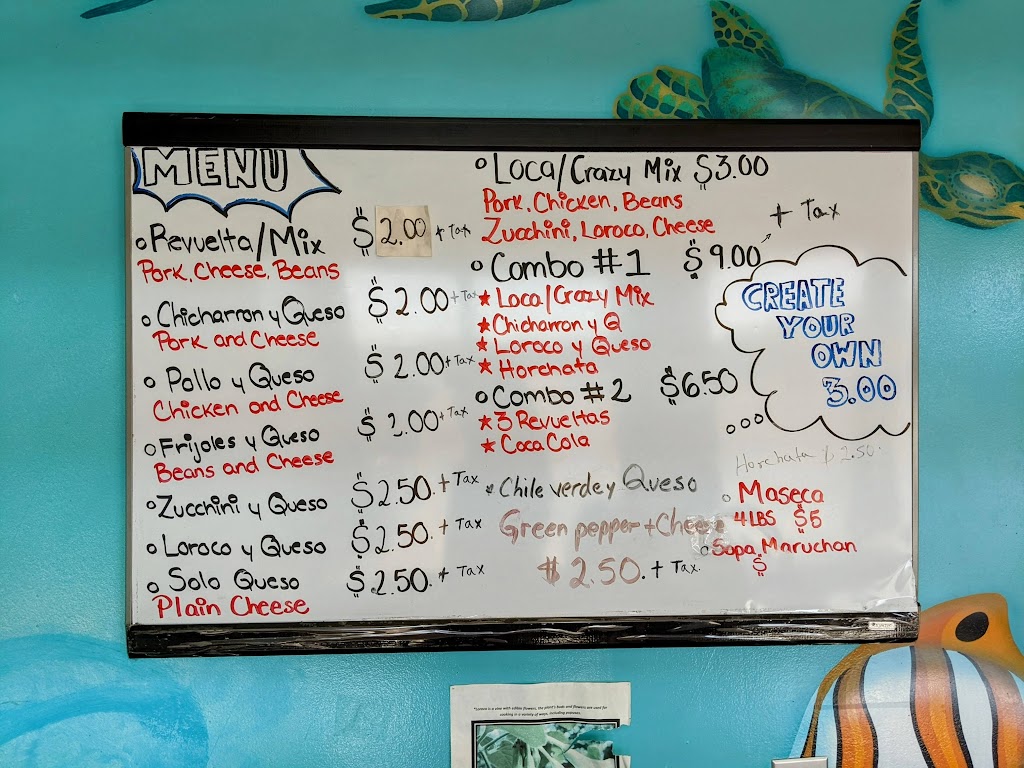 MENU
Revuelta/Mix $2.00 + Tax
Pork, Cheese, Beans
Chicharron y Queso $2.00 + Tax
Pork and Cheese
Pollo y Queso $2.00 + Tax
Chicken and Cheese
Frijoles y Queso $2.00 + Tax
Beans and Cheese
Zucchini y Queso $2.50. + Tax
Loroco y Queso $2.50. + Tax
Solo Queso $2.50. + Tax
Plain Cheese
Loca/Crazy Mix $3.00
Pork, Chicken, Beans
Zucchini, Loroco, Cheese
+ Tax
Combo #1 $9.00
Loca/Crazy Mix
Chicharron y Q
Loroco y Queso
Horchata
Combo #2 $6.50
3 Revueltas
Coca Cola
Chile verde y Queso
Green pepper + Cheese
$2.50. + Tax.
CREATE
YOUR
OWN
3.00
Horchata $2.50.
Maseca
4 LBS $5
Sopa Maruchan
$
"Loroco is a vine with edible flowers, the plant's buds and flowers are used for
cooking in a variety of ways, including